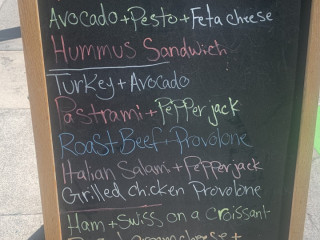 Avocado + Pesto + Feta cheese
Hummus Sandwich
Turkey + Avocado
Pastrami + Pepper jack
Roast Beef + Provolone
Italian Salami + Pepperjack
Grilled chicken Provolone
Ham + Swiss on a croissant
cheese +